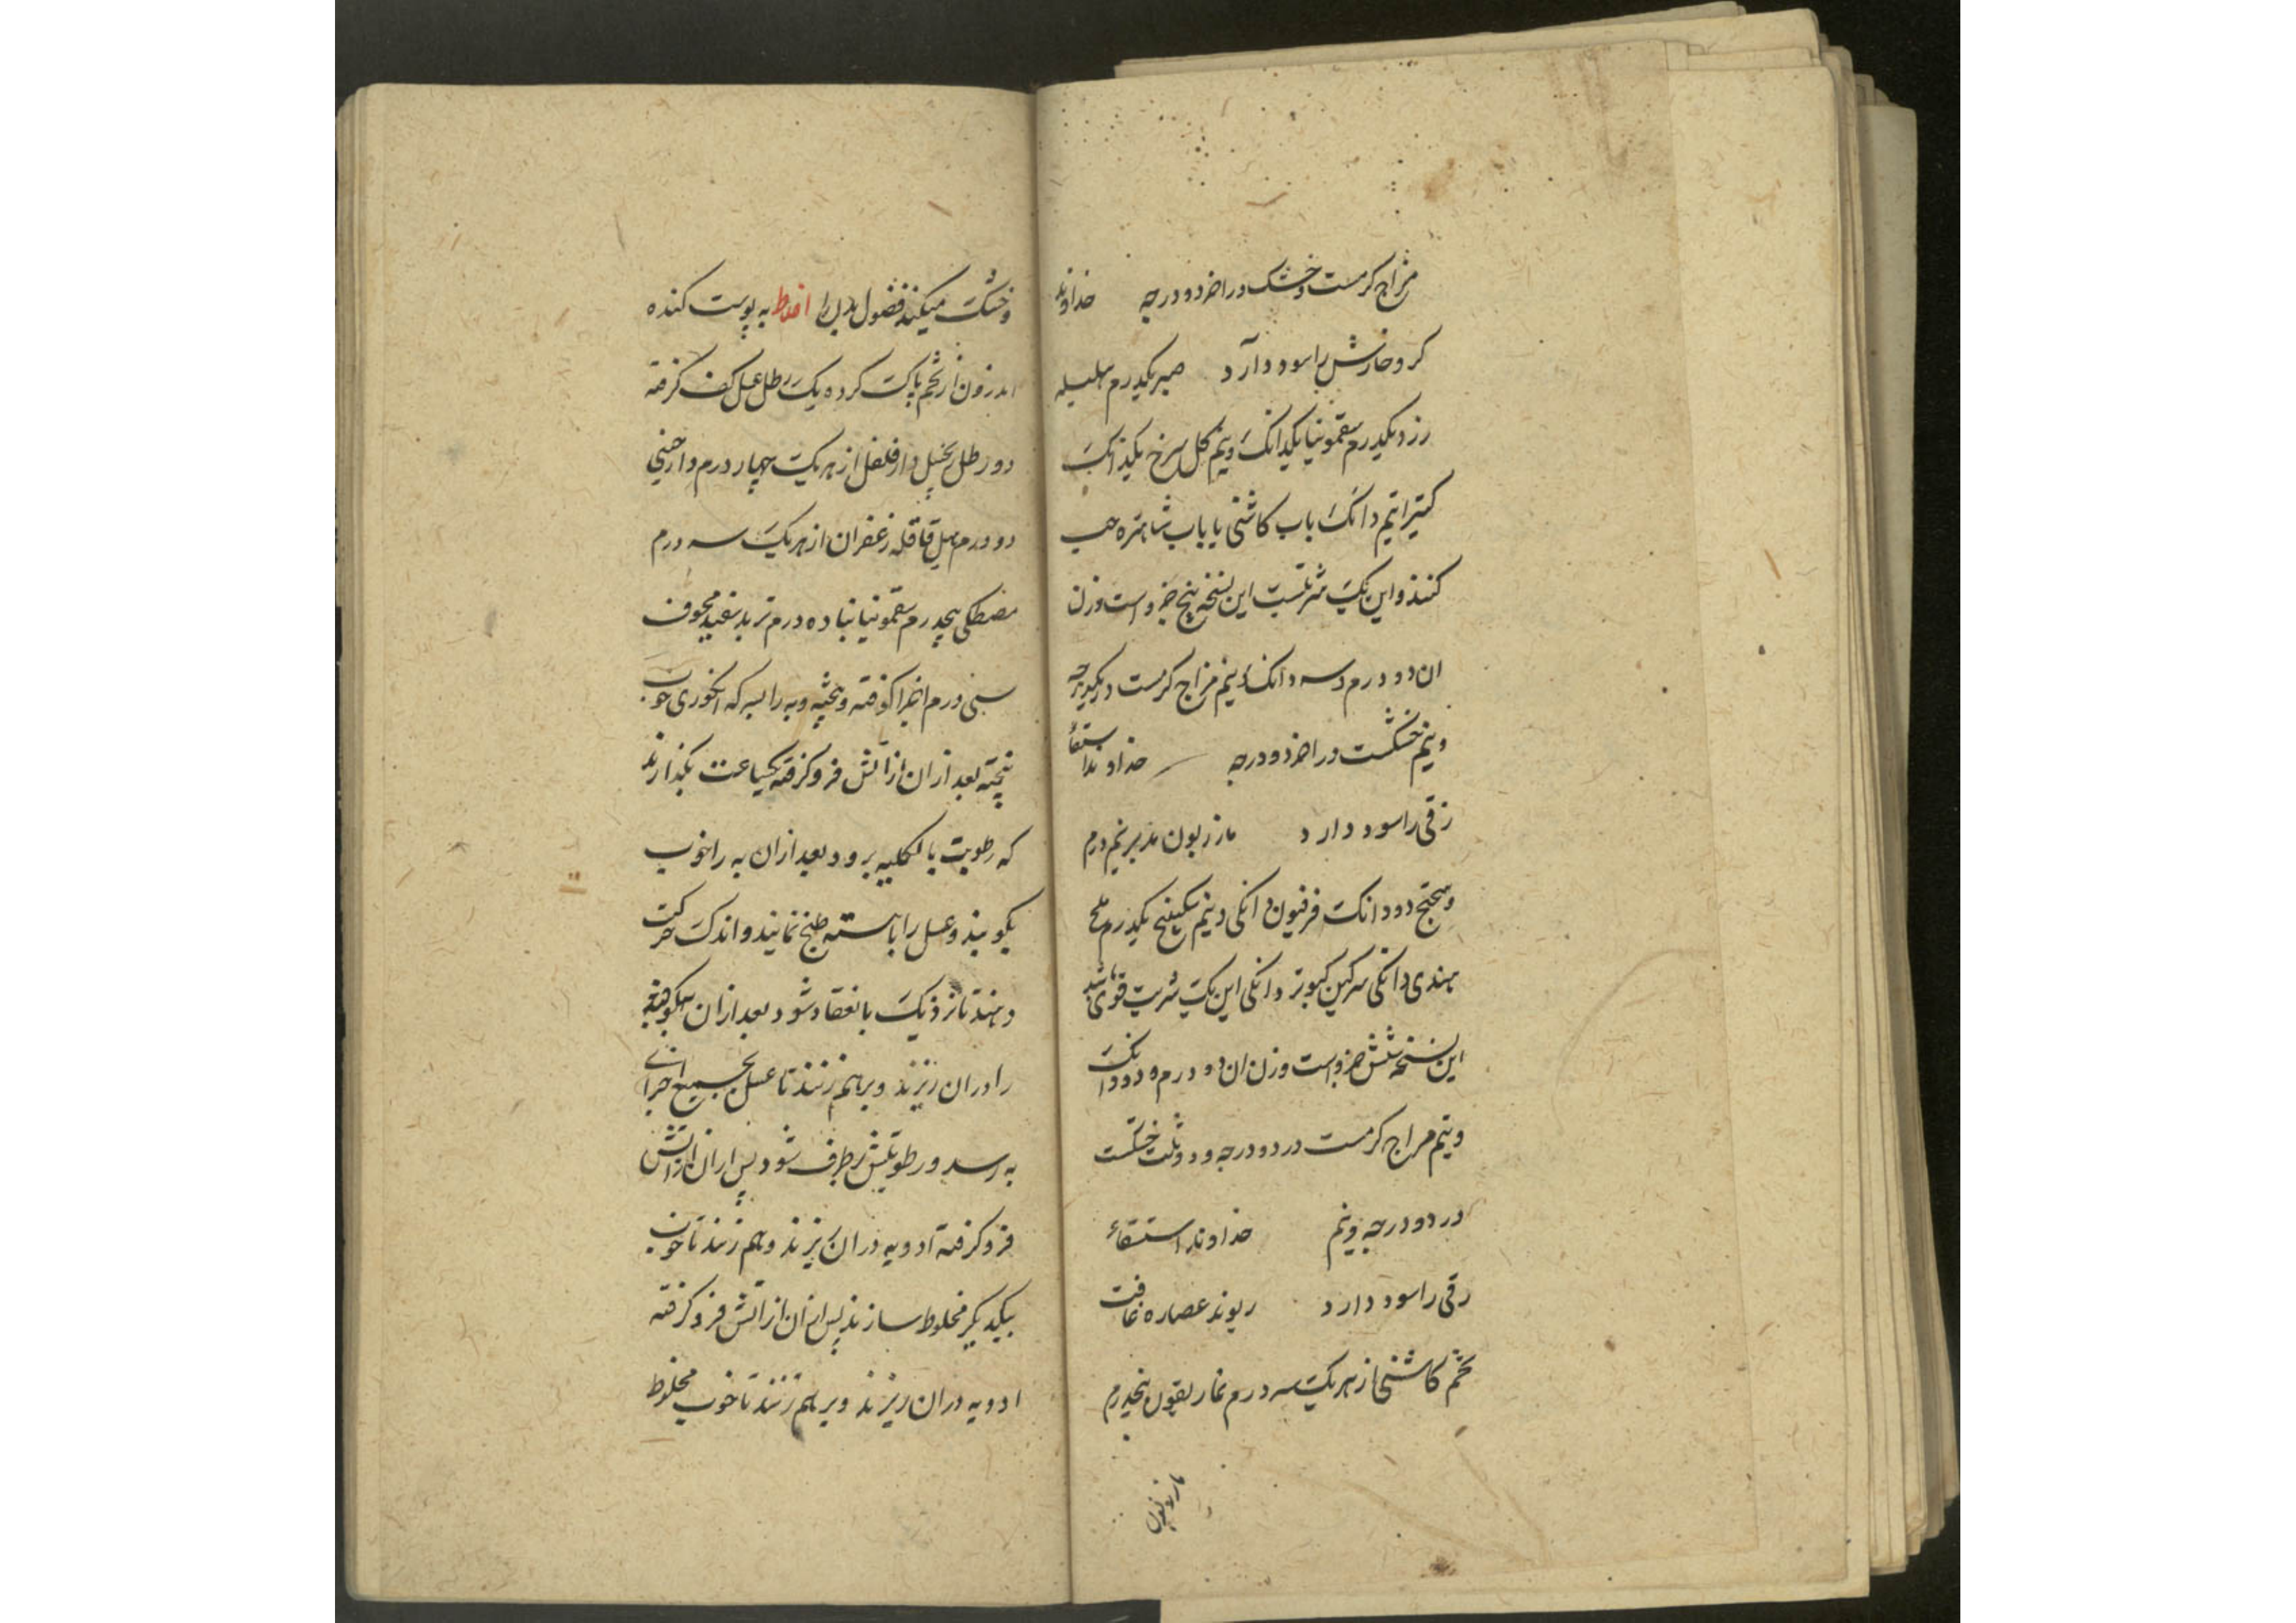 مزاج کرمست و خشک در اخر دو درجه خداوند
کر و خارش را سود دارد صبر یکدرم هلیله
زرد یکدرم سقمونیا یکدانک و نیم کل سرخ یکدانک
کتیرا نیم دانک باب کاشنی یا باب شاهتره حب
کنند و این یک شربتست این نسخه پنج جزو است وزن
ان دو درم و سه دانک و نیم مزاج کرمست در یکدرجه
و نیم خشکست در اخر دو درجه خداوند استسقاء
زقی را سود دارد مازریون مدبر نیم درم
دو دانک فرفیون دانکی و نیم سکبینج یکدرم ملح
هندی دانکی سرکین کبوتر دانکی این یک شربت قوی باشد
این نسخه شش جزو است وزن ان دو درم و دو دانک
و نیم مزاج کرمست در دو درجه و دو ثلث خشکست
در دو درجه و نیم خداوند استسقاء
زقی را سود دارد ریوند عصاره غافت
تخم کاشنی از هر یک سه درم غاریقون پنجدرم
مازریون
و خشک میکند فضول بدن را به پوست کنده
اندرون از تخم پاک کرده یک رطل عسل کف کرفته
دو رطل زنجبیل دارفلفل از هر یک چهار درم دارچینی
دو درم هیل قاقله زعفران از هر یک سه درم
مصطکی پنجدرم سقمونیا ده درم تربد سفید مجوف
سی درم اجزا کوفته و بیخته و به را بسرکه انکوری خوب
پخته بعد ازان از اتش فرو کرفته یکساعت بکذارند
که رطوبت بالکلیه برود بعد ازان به را خوب
بکوبند و عسل را باهسته طبخ نمایند و اندک حرکت
دهند تا نزدیک بانعقاد شود بعد ازان به کوفته
را دران ریزند و برهم زنند تا عسل بجمیع اجزای
به رسد و رطوبتش برطرف شود پس ازان از اتش
فرو کرفته ادویه دران ریزند و بهم زنند تا خوب
بیکدیکر مخلوط سازند پس ازان از اتش فرو کرفته
ادویه دران ریزند و برهم زنند تا خوب مخلوط